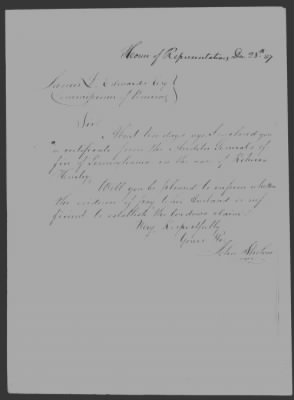 House of Representatives Dec 28th
James L. Edwards Esq
Commissioner of Pensions
Sir
About two days ago I enclosed you
a certificate from the Auditor General's of
fice of Pennsylvania in the case of Rebecca
Will you be pleased to inform whether
the evidence of pay to in
to establish the widows claim.
Very Respectfully
Yours &c
John